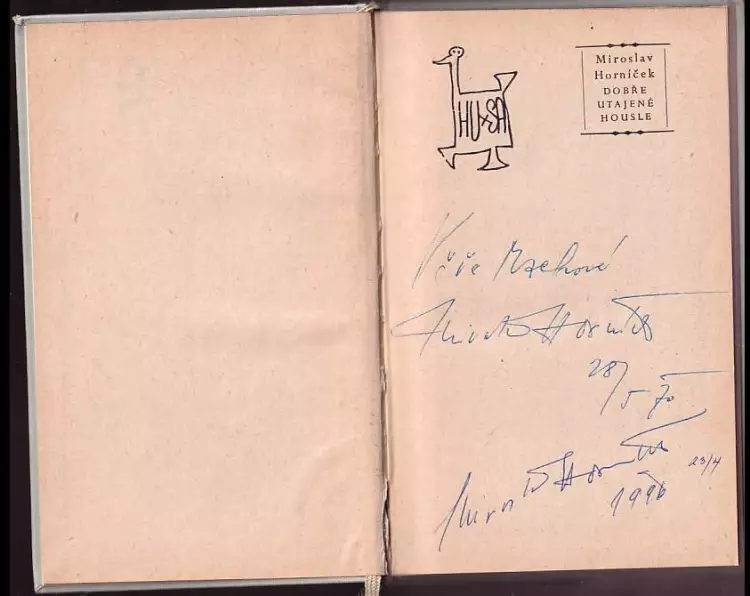 HUSA
Miroslav
Horníček
DOBŘE
UTAJENÉ
HOUSLE
Miroslav Horníček
28/5 70
Miroslav Horníček
23/4
1996